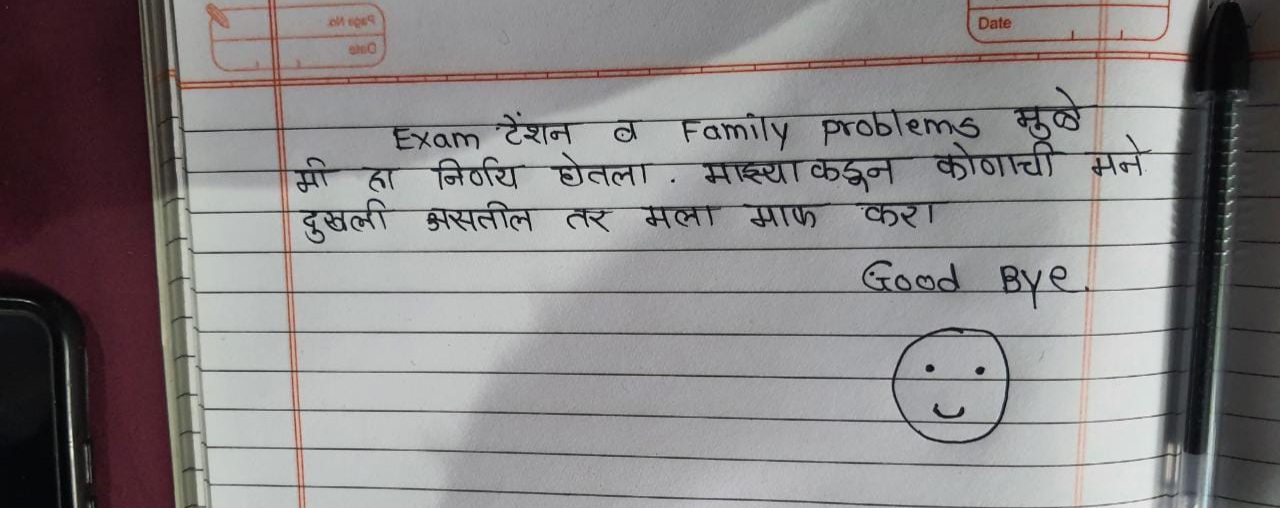 Date
Exam टेंशन व Family problems मुळे
मी हा निर्णय घेतला. माझ्याकडून कोणाची मने
दुखली असतील तर मला माफ करा
Good Bye.